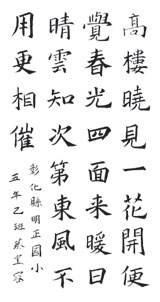 高樓曉見一花開便
覺春光四面来暖日
晴雲知次第東風不
用更相催
彰化縣明正國小
五年乙班